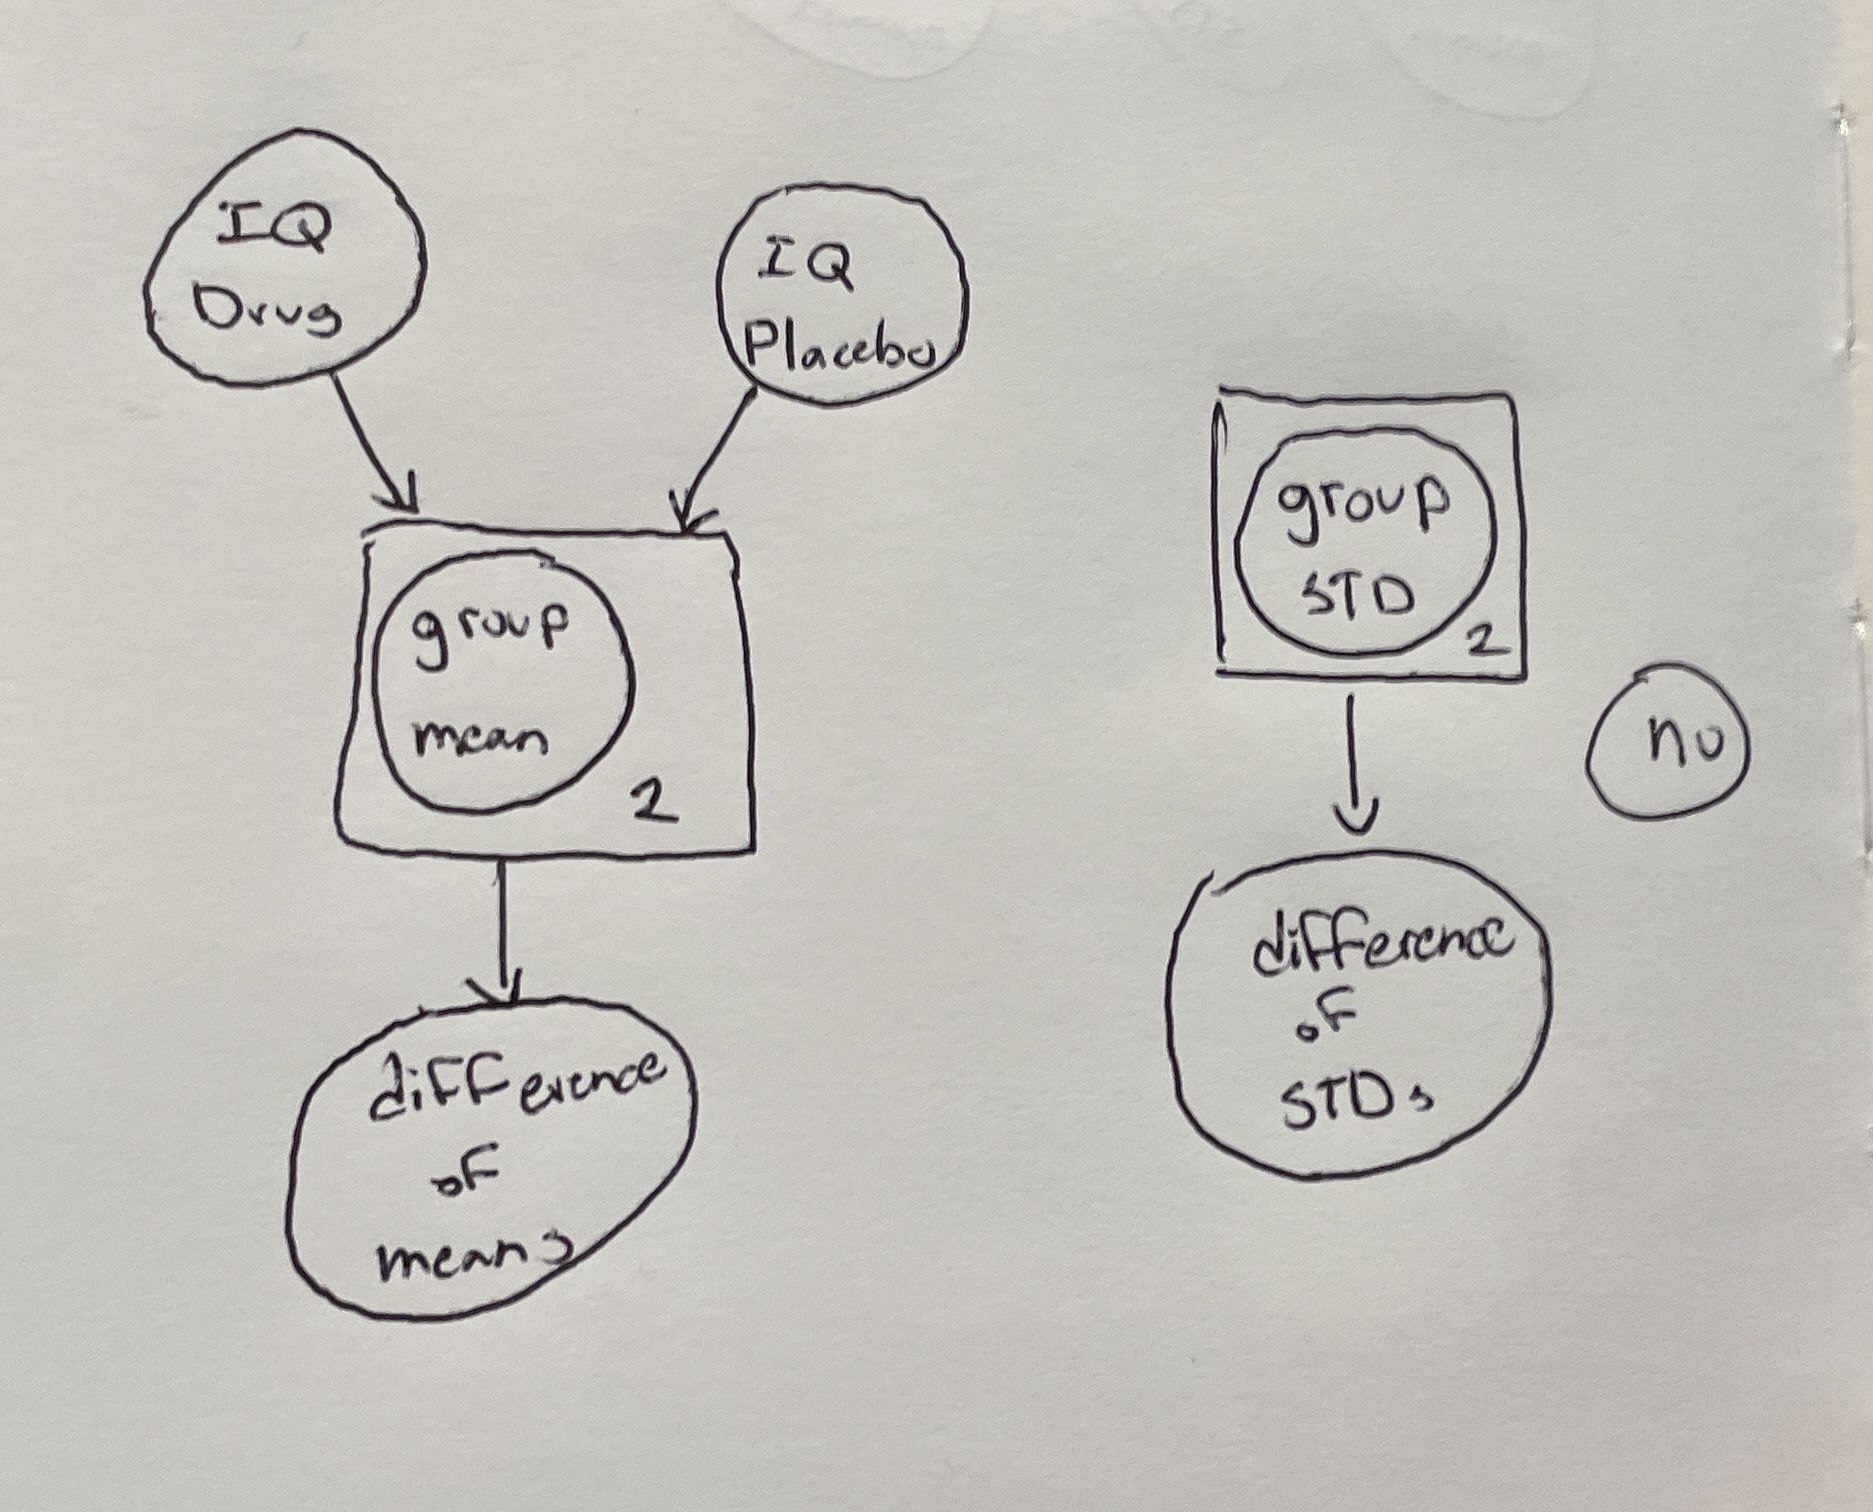 IQ
Drug
IQ
Placebo
group
mean
2
difference
of
means
group
STD
2
nu
difference
of
STDs